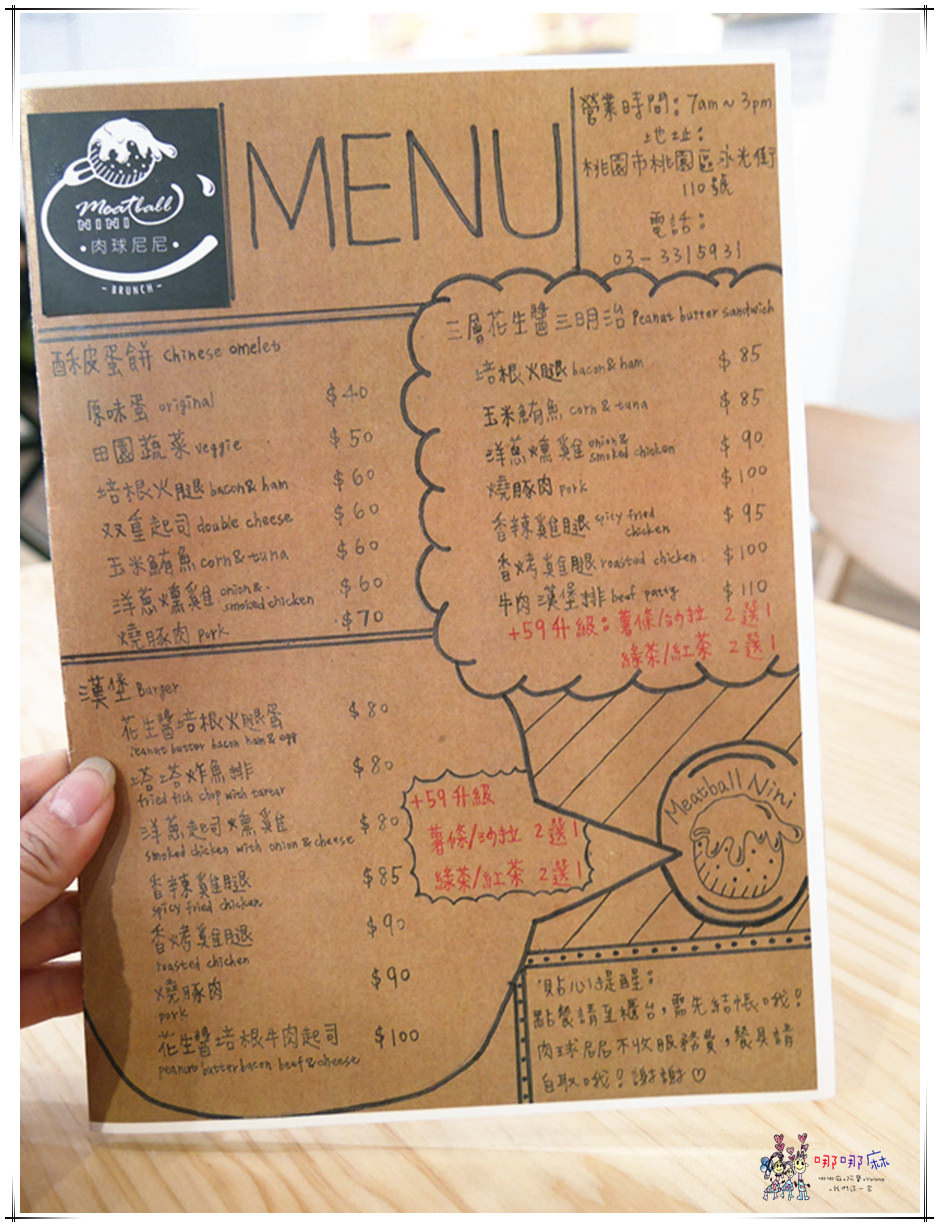 Meatball
NINI
•肉球尼尼•
~BRUNCH~
MENU
營業時間：7am～3pm
地址：
桃園市桃園區永光街
110號
電話：
03-3315931
酥皮蛋餅 Chinese omelet
原味蛋 original $40
田園蔬菜 veggie $50
培根火腿 bacon & ham $60
双重起司 double cheese $60
玉米鮪魚 corn & tuna $60
洋蔥燻雞 onion & smoked chicken $60
燒豚肉 pork $70
三層花生醬三明治 Peanut butter sandwich
培根火腿 bacon & ham $85
玉米鮪魚 corn & tuna $85
洋蔥燻雞 onion & smoked chicken $90
燒豚肉 pork $100
香辣雞腿 spicy fried chicken $95
香烤雞腿 roasted chicken $100
牛肉漢堡排 beef patty $110
+59升級：薯條/沙拉 2選1
綠茶/紅茶 2選1
漢堡 Burger
花生醬培根火腿蛋 $80
Peanut butter bacon ham & egg
塔塔炸魚排 $80
fried fish chop with tartar
洋蔥起司燻雞 $80
smoked chicken with onion & cheese
香辣雞腿 $85
spicy fried chicken
香烤雞腿 $90
roasted chicken
燒豚肉 $90
pork
花生醬培根牛肉起司 $100
peanut butter bacon beef & cheese
+59升級
薯條/沙拉 2選1
綠茶/紅茶 2選1
Meatball Nini
貼心提醒：
點餐請至櫃台，需先結帳哦！
肉球尼尼不收服務費，餐具請
自取哦！謝謝♡
哪哪麻